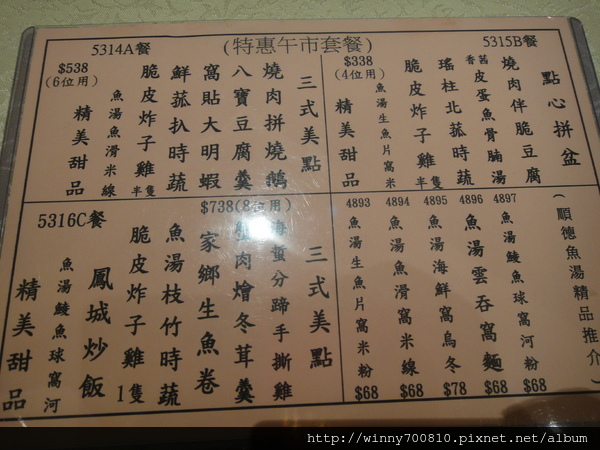 (特惠午市套餐)
5314A餐
$538
(6位用)
三式美點
燒肉拼燒鵝
八寶豆腐羹
窩貼大明蝦
鮮菰扒時蔬
脆皮炸子雞半隻
魚湯魚滑米線
精美甜品
5315B餐
$338
(4位用)
點心拼盆
燒肉伴脆豆腐
香茜皮蛋魚骨腩湯
瑤柱北菰時蔬
脆皮炸子雞半隻
魚湯生魚片窩米
精美甜品
5316C餐
$738(8位用)
三式美點
海蜇分蹄手撕雞
肉燴冬茸羹
家鄉生魚卷
魚湯枝竹時蔬
脆皮炸子雞1隻
鳳城炒飯
魚湯鯪魚球窩河
精美甜品
(順德魚湯精品推介)
4897 魚湯鯪魚球窩河粉 $68
4896 魚湯雲吞窩麵 $68
4895 魚湯海鮮窩烏冬 $78
4894 魚湯魚滑窩米線 $68
4893 魚湯生魚片窩米粉 $68
http://winny700810.pixnet.net/album